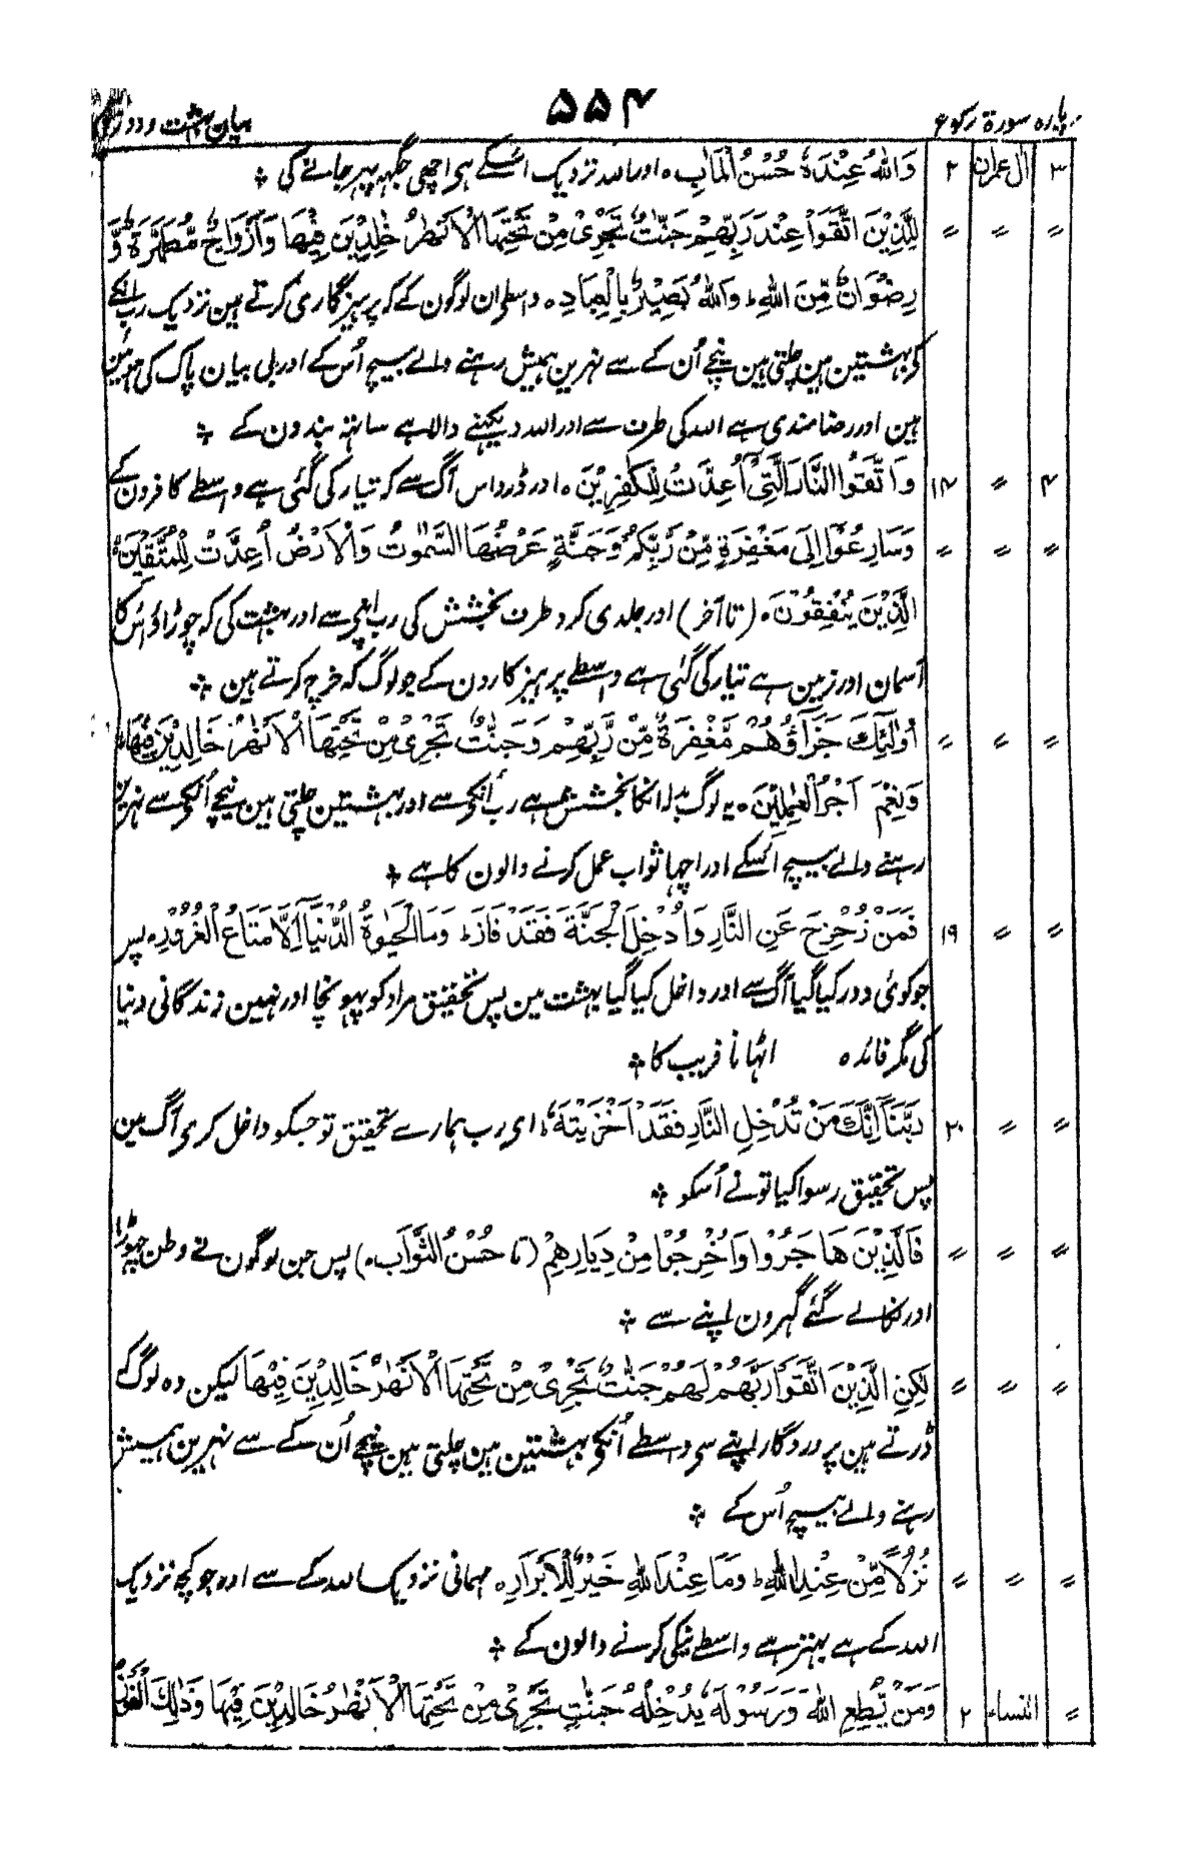 پارہ سورۃ رکوع ۵۵۴ بیان بہشت و دوزخ
۳ اٰل عمران ۲ وَاللّٰهُ عِنْدَهٗ حُسْنُ الْمَاٰبِ ہ اور اللہ نزدیک اسکے ہی اچھی جگہہ پہر جانے کی
〃 〃 〃 لِلَّذِيْنَ اتَّقَوْا عِنْدَ رَبِّهِمْ جَنّٰتٌ تَجْرِيْ مِنْ تَحْتِهَا الْاَنْهٰرُ خٰلِدِيْنَ فِيْهَا وَاَزْوَاجٌ مُّطَهَّرَةٌ وَّ
رِضْوَانٌ مِّنَ اللّٰهِ ط وَاللّٰهُ بَصِيْرٌۢ بِالْعِبَادِ ہ واسطے ان لوگون کے کہ پرہیزگاری کرتے ہین نزدیک رب انکے
کی بہشتین ہین چلتی ہین نیچے اُن کے سے نہرین ہمیش رہنے والے بیچ اُس کے اور بی بیان پاک کی ہوئین
ہین اور رضامندی ہے اللہ کی طرف سے اور اللہ دیکہنے والا ہے ساتہہ بندون کے
۴ 〃 ۱۴ وَاتَّقُوا النَّارَ الَّتِيْٓ اُعِدَّتْ لِلْكٰفِرِيْنَ ہ اور ڈرو اس آگ سے کہ تیار کی گئی ہے واسطے کافرون کے
〃 〃 〃 وَسَارِعُوْٓا اِلٰى مَغْفِرَةٍ مِّنْ رَّبِّكُمْ وَجَنَّةٍ عَرْضُهَا السَّمٰوٰتُ وَالْاَرْضُ اُعِدَّتْ لِلْمُتَّقِيْنَ
الَّذِيْنَ يُنْفِقُوْنَ ہ (تا آخر) اور جلدی کرو طرف بخشش کی رب اپنے سے اور بہشت کی کہ چوڑاؤ اُس کا
آسمان اور زمین ہے تیار کی گئی ہے واسطے پرہیزکارون کے جو لوگ کہ خرچ کرتے ہین
〃 〃 〃 اُولٰٓئِكَ جَزَآؤُهُمْ مَّغْفِرَةٌ مِّنْ رَّبِّهِمْ وَجَنّٰتٌ تَجْرِيْ مِنْ تَحْتِهَا الْاَنْهٰرُ خَالِدِيْنَ فِيْهَا
وَنِعْمَ اَجْرُ الْعٰمِلِيْنَ ہ یہ لوگ بدلا انکا بخشش ہے رب اُنکے سے اور بہشتین چلتی ہین نیچے اُنکے سے نہرین
رہنے والے بیچ اسکے اور اچہا ثواب عمل کرنے والون کا ہے
〃 〃 ۱۹ فَمَنْ زُحْزِحَ عَنِ النَّارِ وَاُدْخِلَ الْجَنَّةَ فَقَدْ فَازَ ط وَمَا الْحَيٰوةُ الدُّنْيَآ اِلَّا مَتَاعُ الْغُرُوْرِ ہ پس
جو کوئی دور کیا گیا آگ سے اور داخل کیا گیا بہشت مین پس تحقیق مراد کو پہونچا اور نہین زندگانی دنیا
کی مگر فائدہ اٹہانا فریب کا
〃 〃 ۲۰ رَبَّنَآ اِنَّكَ مَنْ تُدْخِلِ النَّارَ فَقَدْ اَخْزَيْتَهٗ ای رب ہمارے تحقیق تو جسکو داخل کری آگ مین
پس تحقیق رسوا کیا تونے اُسکو
〃 〃 〃 فَالَّذِيْنَ هَاجَرُوْا وَاُخْرِجُوْا مِنْ دِيَارِهِمْ (تا حُسْنُ الثَّوَابِ ہ) پس جن لوگون نے وطن چھوڑا
اور نکالے گئے گہرون اپنے سے
〃 〃 〃 لٰكِنِ الَّذِيْنَ اتَّقَوْا رَبَّهُمْ لَهُمْ جَنّٰتٌ تَجْرِيْ مِنْ تَحْتِهَا الْاَنْهٰرُ خَالِدِيْنَ فِيْهَا لیکن وہ لوگ کہ
ڈرتے ہین پروردگار اپنے سے واسطے اُنکے بہشتین ہین چلتی ہین نیچے اُن کے سے نہرین ہمیش
رہنے والے بیچ اُس کے
〃 〃 〃 نُزُلًا مِّنْ عِنْدِ اللّٰهِ ط وَمَا عِنْدَ اللّٰهِ خَيْرٌ لِّلْاَبْرَارِ ہ مہمانی نزدیک اللہ کے سے اور جو کچہ نزدیک
اللہ کے ہے بہتر ہے واسطے نیکی کرنے والون کے
〃 النساء ۲ وَمَنْ يُّطِعِ اللّٰهَ وَرَسُوْلَهٗ يُدْخِلْهُ جَنّٰتٍ تَجْرِيْ مِنْ تَحْتِهَا الْاَنْهٰرُ خَالِدِيْنَ فِيْهَا وَذٰلِكَ الْفَوْزُ